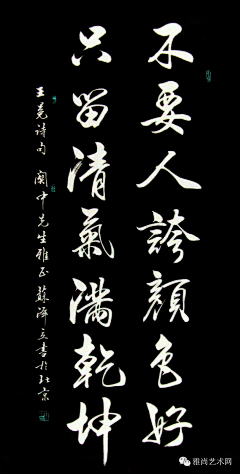 不要人誇顏色好
只留清氣滿乾坤
王冕詩句 闗中先生雅正 蘇澤立書於北京
雅尚艺术网